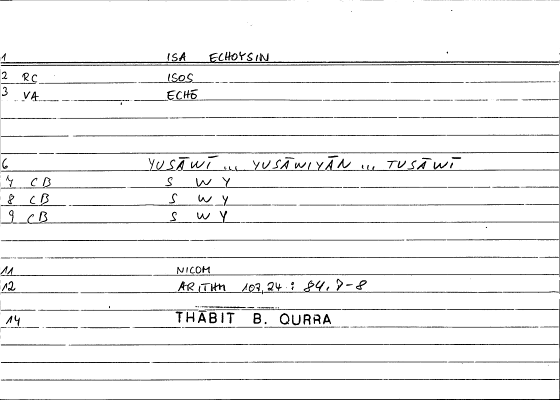 1 ISA ECHOYSIN
2 RC ISOS
3 VA ECHŌ
6 YUSĀWĪ ... YUSĀWIYĀN ... TUSĀWĪ
7 CB S W Y
8 CB S W Y
9 CB S W Y
11 NICOM
12 ARITHM 107,24 : 84,7-8
14 THĀBIT B. QURRA